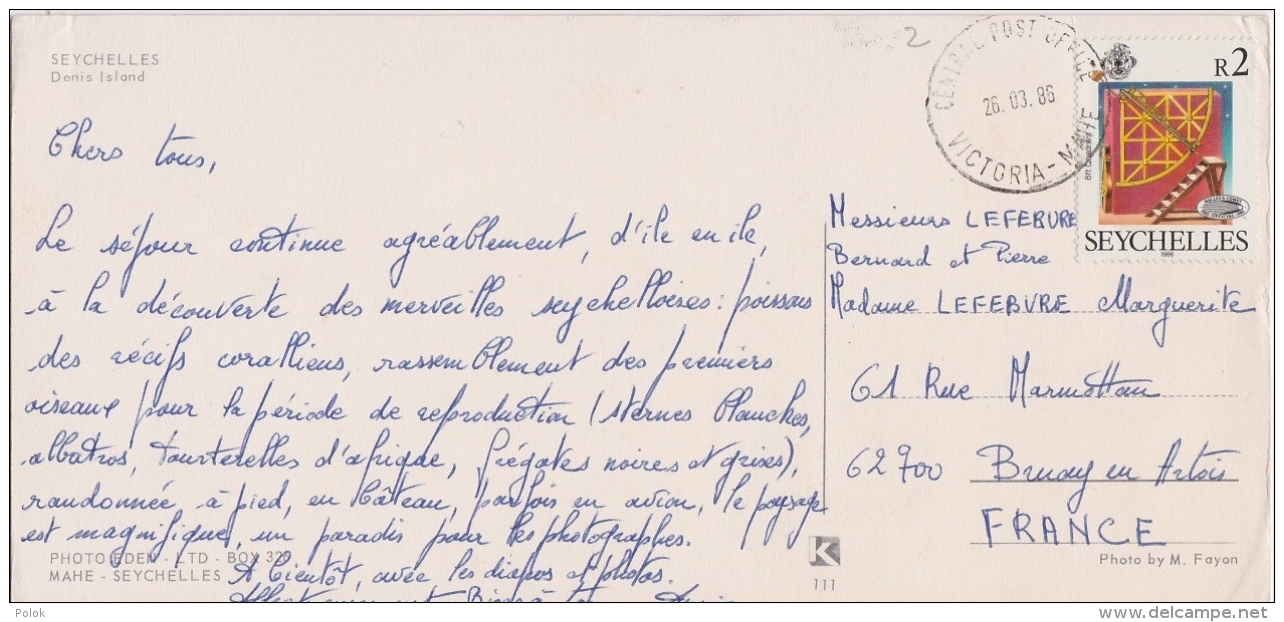 SEYCHELLES
Denis Island
2
CENTRAL POST OFFICE
26.03.86
VICTORIA - MAHE
R2
8ft Quadrant
SEYCHELLES
1986
Chers tous,
Le séjour continue agréablement, d'île en île,
à la découverte des merveilles seychelloises : poissons
des récifs coralliens, rassemblement des premiers
oiseaux pour la période de reproduction (sternes blanches,
albatros, tourterelles d'afrique, frégates noires et grises),
randonnée à pied, en bâteau, parfois en avion, le paysage
est magnifique, un paradis pour les photographes.
A bientôt, avec les diapos et photos.
Messieurs LEFEBVRE
Bernard et Pierre
Madame LEFEBVRE Marguerite
61 Rue Marmottan
62700 Bruay en Artois
FRANCE
PHOTO EDEN - LTD - BOX 329
MAHE - SEYCHELLES
K
111
Photo by M. Fayon
Polok
delcampe.net